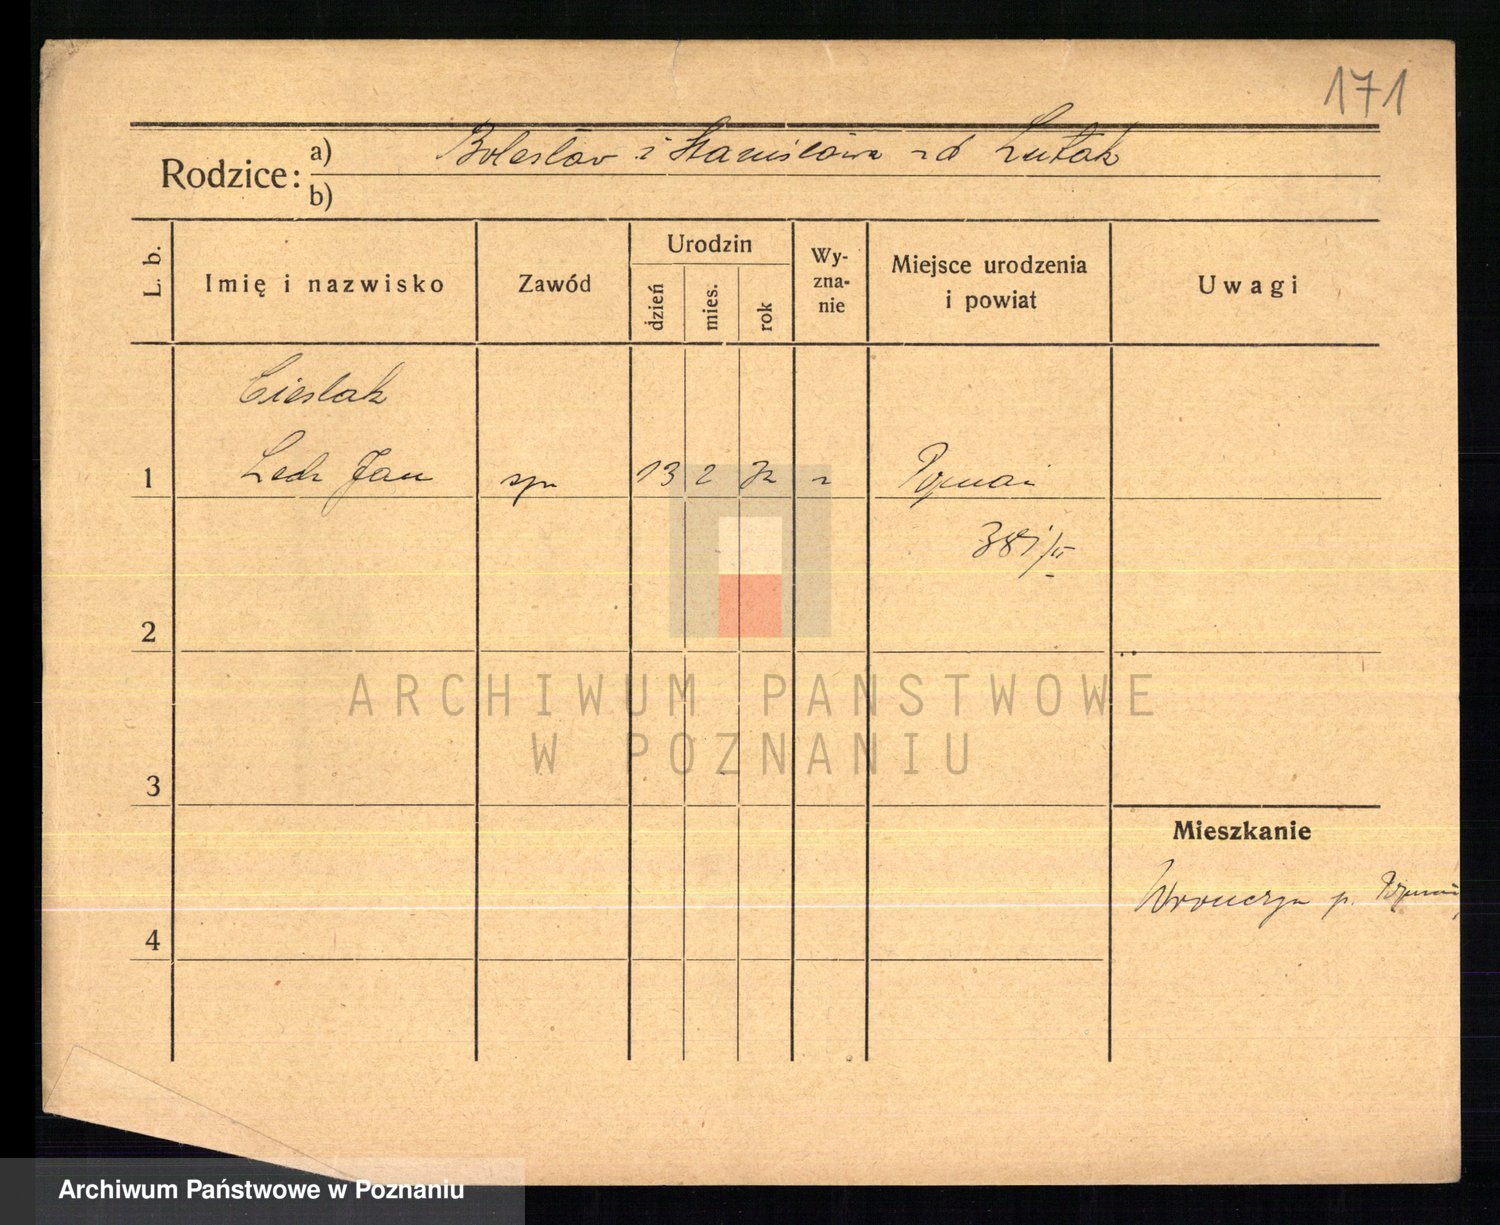 171
Rodzice: a) Bolesław i Stanisława zd Lutak
b)
L. b.
Imię i nazwisko
Zawód
Urodzin
dzień
mies.
rok
Wy-
zna-
nie
Miejsce urodzenia
i powiat
Uwagi
Cieslak
1 Lech Jan syn 13 2 32 r Poznań
381/II
2
3
4
Mieszkanie
Wronczyn p. Poznań
ARCHIWUM PAŃSTWOWE
W POZNANIU
Archiwum Państwowe w Poznaniu